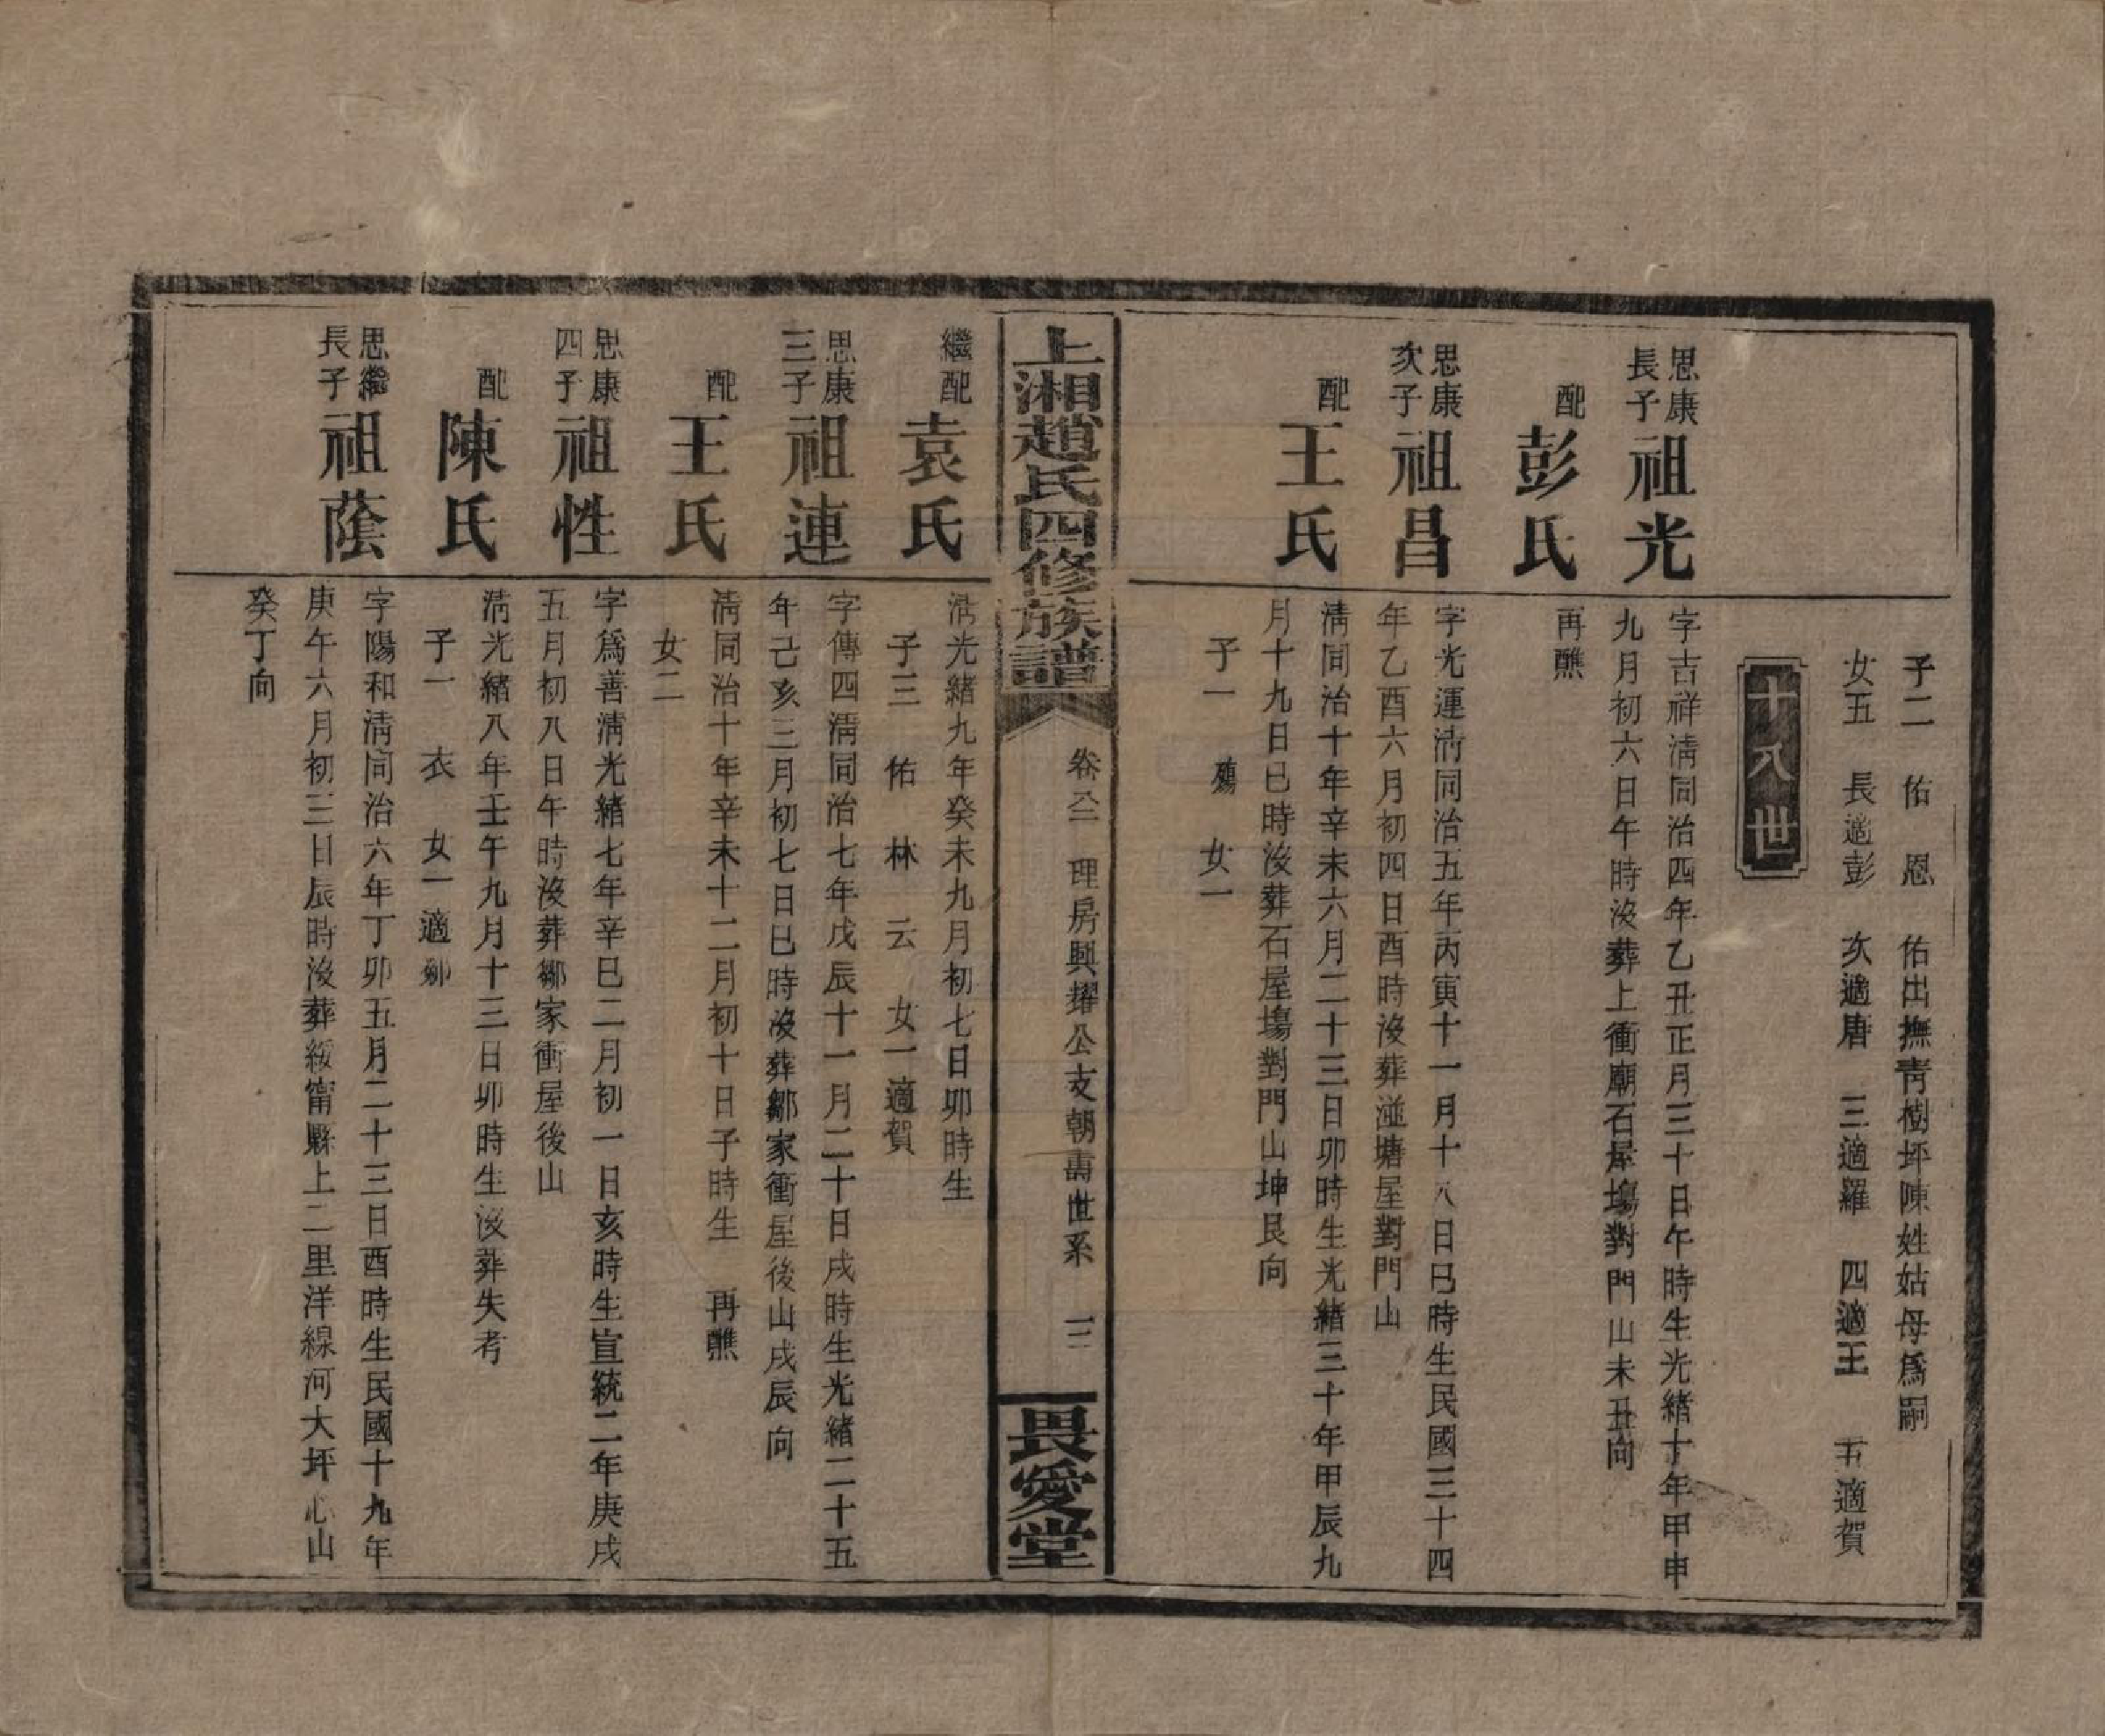 子二　佑　恩　佑出撫靑樹坪陳姓姑母爲嗣
女五　長適彭　次適唐　三適羅　四適王　五適賀
十八世
思康長子 祖光
字吉祥淸同治四年乙丑正月三十日午時生光緖十年甲申
九月初六日午時沒葬上衝廟石屋塲對門山未丑向
配 彭氏
再醮
思康次子 祖昌
字光運淸同治五年丙寅十一月十八日巳時生民國三十四
年乙酉六月初四日酉時沒葬湴塘屋對門山
配 王氏
淸同治十年辛未六月二十三日卯時生光緖三十年甲辰九
月十九日巳時沒葬石屋塲對門山坤艮向
子一　殤　女一
上湘趙氏四修族譜
卷八二　理房興耀公支朝壽世系　三
畏愛堂
繼配 袁氏
淸光緖九年癸未九月初七日卯時生
子三　佑　林　云　女一適賀
思康三子 祖連
字傳四淸同治七年戊辰十一月二十日戌時生光緖二十五
年己亥三月初七日巳時沒葬鄒家衝屋後山戌辰向
配 王氏
淸同治十年辛未十二月初十日子時生　再醮
女二
思康四子 祖性
字爲善淸光緖七年辛巳二月初一日亥時生宣統二年庚戌
五月初八日午時沒葬鄒家衝屋後山
配 陳氏
淸光緖八年壬午九月十三日卯時生沒葬失考
子一　衣　女一適鄒
思繼長子 祖蔭
字陽和淸同治六年丁卯五月二十三日酉時生民國十九年
庚午六月初三日辰時沒葬綏甯縣上二里洋線河大坪心山
癸丁向